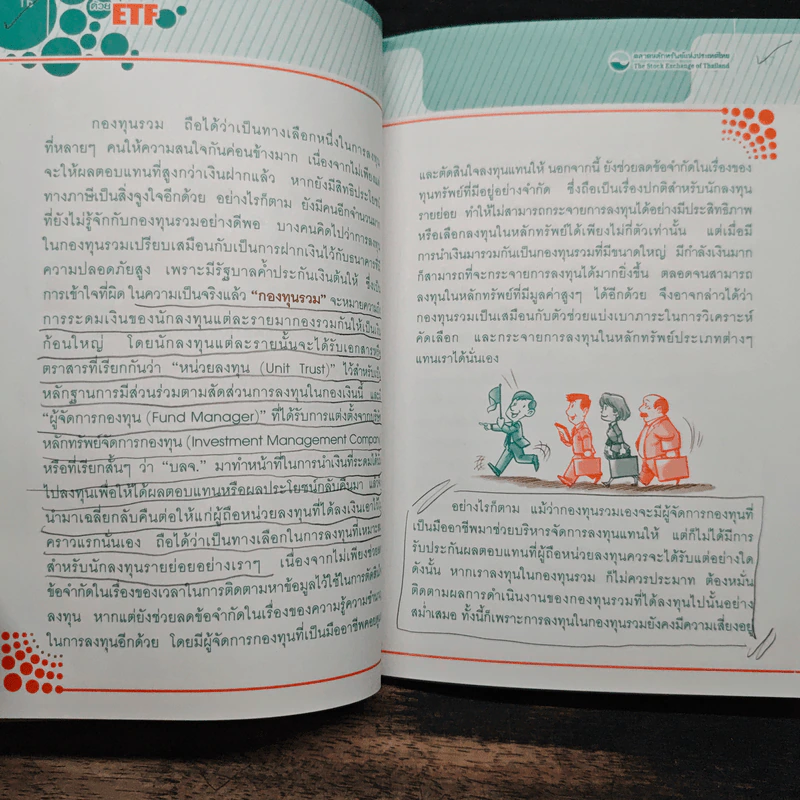 ด้วย
ETF
กองทุนรวม ถือได้ว่าเป็นทางเลือกหนึ่งในการลงทุน
ที่หลายๆ คนให้ความสนใจกันค่อนข้างมาก เนื่องจากไม่เพียง
จะให้ผลตอบแทนที่สูงกว่าเงินฝากแล้ว หากยังมีสิทธิประโยชน์
ทางภาษีเป็นสิ่งจูงใจอีกด้วย อย่างไรก็ตาม ยังมีคนอีกจำนวนมาก
ที่ยังไม่รู้จักกับกองทุนรวมอย่างดีพอ บางคนคิดไปว่าการลงทุน
ในกองทุนรวมเปรียบเสมือนกับเป็นการฝากเงินไว้กับธนาคารที่มี
ความปลอดภัยสูง เพราะมีรัฐบาลค้ำประกันเงินต้นให้ ซึ่งเป็น
การเข้าใจที่ผิด ในความเป็นจริงแล้ว “กองทุนรวม” จะหมายความถึง
การระดมเงินของนักลงทุนแต่ละรายมากองรวมกันให้เป็นเงิน
ก้อนใหญ่ โดยนักลงทุนแต่ละรายนั้นจะได้รับเอกสารหรือ
ตราสารที่เรียกกันว่า “หน่วยลงทุน (Unit Trust)” ไว้สำหรับเป็น
หลักฐานการมีส่วนร่วมตามสัดส่วนการลงทุนในกองเงินนี้ และมี
“ผู้จัดการกองทุน (Fund Manager)” ที่ได้รับการแต่งตั้งจากบริษัท
หลักทรัพย์จัดการกองทุน (Investment Management Company)
หรือที่เรียกสั้นๆ ว่า “บลจ.” มาทำหน้าที่ในการนำเงินที่ระดมได้นั้น
ไปลงทุนเพื่อให้ได้ผลตอบแทนหรือผลประโยชน์กลับคืนมา แล้วจึง
นำมาเฉลี่ยกลับคืนต่อให้แก่ผู้ถือหน่วยลงทุนที่ได้ลงเงินเอาไว้ใน
คราวแรกนั่นเอง ถือได้ว่าเป็นทางเลือกในการลงทุนที่เหมาะสม
สำหรับนักลงทุนรายย่อยอย่างเราๆ เนื่องจากไม่เพียงช่วยลด
ข้อจำกัดในเรื่องของเวลาในการติดตามหาข้อมูลไว้ใช้ในการตัดสินใจ
ลงทุน หากแต่ยังช่วยลดข้อจำกัดในเรื่องของความรู้ความชำนาญ
ในการลงทุนอีกด้วย โดยมีผู้จัดการกองทุนที่เป็นมืออาชีพคอยดูแล
ตลาดหลักทรัพย์แห่งประเทศไทย
The Stock Exchange of Thailand
และตัดสินใจลงทุนแทนให้ นอกจากนี้ ยังช่วยลดข้อจำกัดในเรื่องของ
ทุนทรัพย์ที่มีอยู่อย่างจำกัด ซึ่งถือเป็นเรื่องปกติสำหรับนักลงทุน
รายย่อย ทำให้ไม่สามารถกระจายการลงทุนได้อย่างมีประสิทธิภาพ
หรือเลือกลงทุนในหลักทรัพย์ได้เพียงไม่กี่ตัวเท่านั้น แต่เมื่อมี
การนำเงินมารวมกันเป็นกองทุนรวมที่มีขนาดใหญ่ มีกำลังเงินมาก
ก็สามารถที่จะกระจายการลงทุนได้มากยิ่งขึ้น ตลอดจนสามารถ
ลงทุนในหลักทรัพย์ที่มีมูลค่าสูงๆ ได้อีกด้วย จึงอาจกล่าวได้ว่า
กองทุนรวมเป็นเสมือนกับตัวช่วยแบ่งเบาภาระในการวิเคราะห์
คัดเลือก และกระจายการลงทุนในหลักทรัพย์ประเภทต่างๆ
แทนเราได้นั่นเอง
อย่างไรก็ตาม แม้ว่ากองทุนรวมเองจะมีผู้จัดการกองทุนที่
เป็นมืออาชีพมาช่วยบริหารจัดการลงทุนแทนให้ แต่ก็ไม่ได้มีการ
รับประกันผลตอบแทนที่ผู้ถือหน่วยลงทุนควรจะได้รับแต่อย่างใด
ดังนั้น หากเราลงทุนในกองทุนรวม ก็ไม่ควรประมาท ต้องหมั่น
ติดตามผลการดำเนินงานของกองทุนรวมที่ได้ลงทุนไปนั้นอย่าง
สม่ำเสมอ ทั้งนี้ก็เพราะการลงทุนในกองทุนรวมยังคงมีความเสี่ยงอยู่